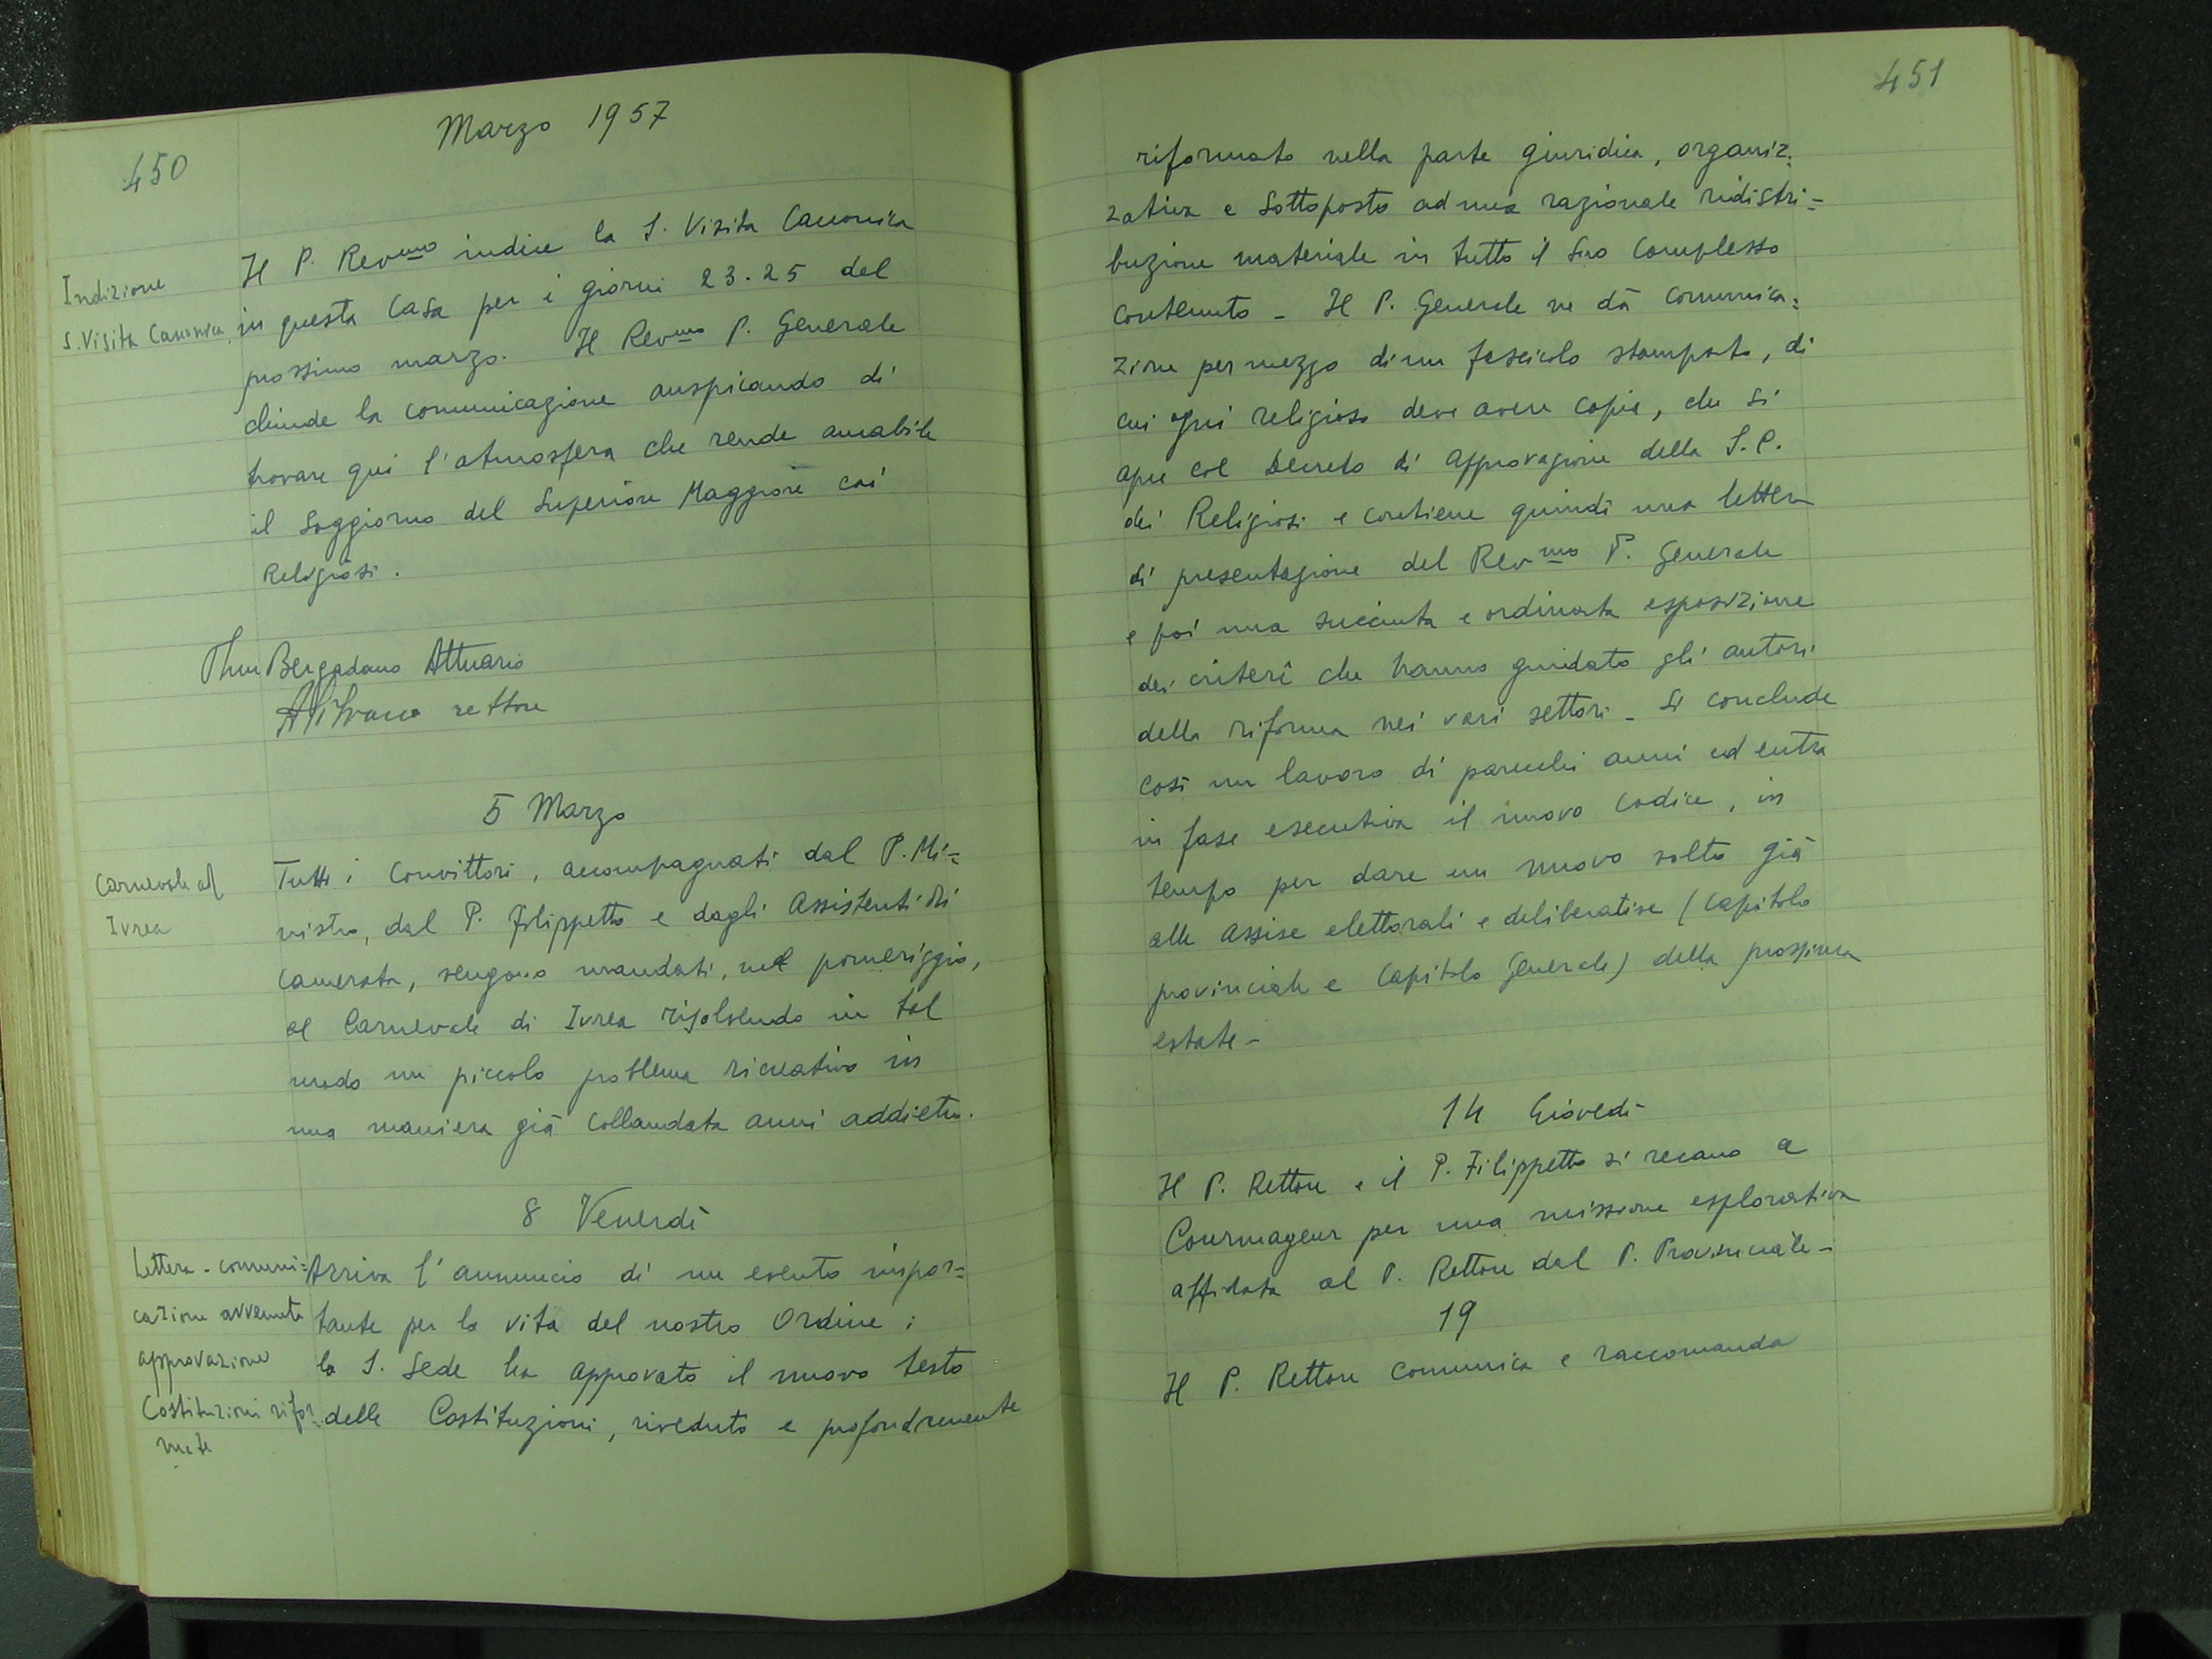 450
Marzo 1957
Indizione
S. Visita Canonica
Il P. Rev.mo indice la S. Visita Canonica
in questa Casa per i giorni 23-25 del
prossimo marzo. Il Rev.mo P. Generale
chiude la comunicazione auspicando di
trovare qui l'atmosfera che rende amabile
il soggiorno del Superiore Maggiore coi
Religiosi.
Bergadano Attuario
rettore
5 Marzo
Carnevale di
Ivrea
Tutti i Convittori, accompagnati dal P. Mi=
nistro, dal P. Filippetto e dagli Assistenti di
camerata, vengono mandati, nel pomeriggio,
al Carnevale di Ivrea risolvendo in tal
modo un piccolo problema ricreativo in
una maniera già collaudata anni addietro.
8 Venerdì
Lettera - comuni=
cazione avvenuta
approvazione
Costituzioni rifor=
mate
Arriva l'annuncio di un evento impor=
tante per la vita del nostro Ordine:
la S. Sede ha approvato il nuovo testo
delle Costituzioni, riveduto e profondamente
451
riformato nella parte giuridica, organiz=
zativa e sottoposto ad una razionale ridistri=
buzione materiale in tutto il suo complesso
contenuto - Il P. Generale ne dà comunica=
zione per mezzo di un fascicolo stampato, di
cui ogni religioso deve avere copia, che si
apre col Decreto di approvazione della S.C.
dei Religiosi e contiene quindi una lettera
di presentazione del Rev.mo P. Generale
e poi una succinta e ordinata esposizione
dei criteri che hanno guidato gli autori
della riforma nei vari settori - Si conclude
così un lavoro di parecchi anni ed entra
in fase esecutiva il nuovo Codice, in
tempo per dare un nuovo volto già
alle assise elettorali e deliberative (Capitolo
provinciale e Capitolo Generale) della prossima
estate -
14 Giovedì
Il P. Rettore e il P. Filippetto si recano a
Courmayeur per una missione esplorativa
affidata al P. Rettore dal P. Provinciale -
19
Il P. Rettore comunica e raccomanda